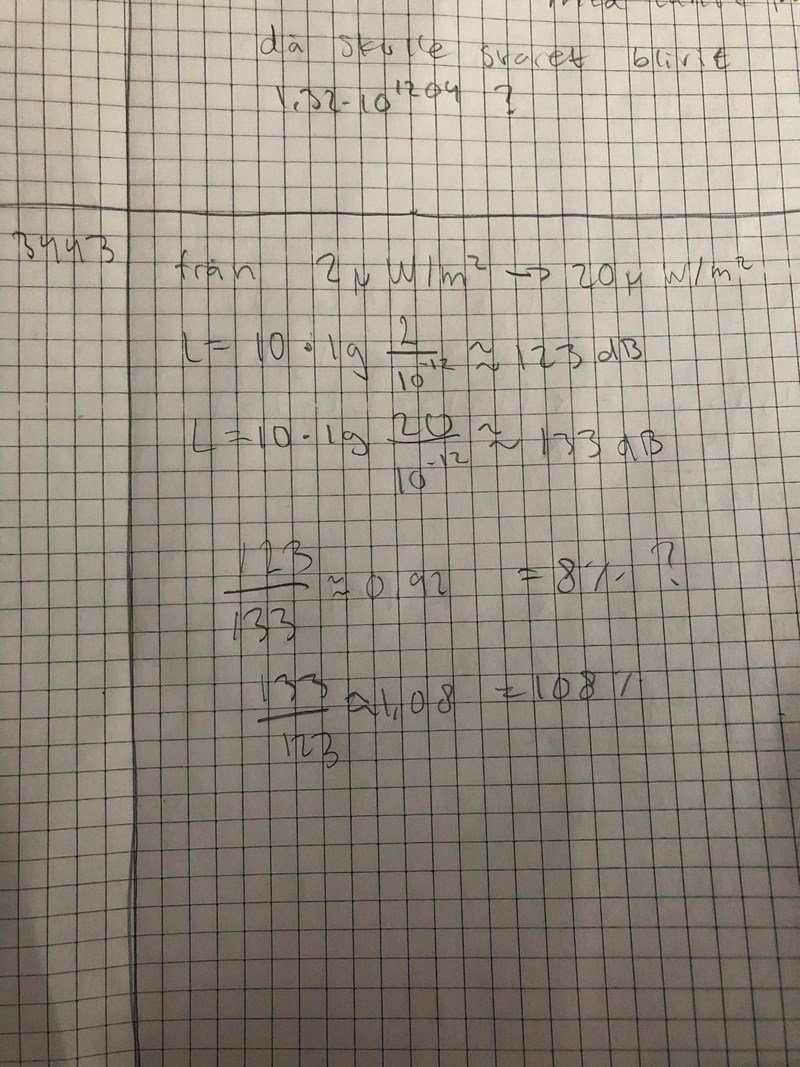 då skulle svaret blivit
1.32-10^1204 ?
3443
från 2μ W/m² → 20μ W/m²
L = 10 · lg 2/10^-12 ≈ 123 dB
L = 10 · lg 20/10^-12 ≈ 133 dB
123/133 ≈ 0,92 = 8% ?
133/123 ≈ 1,08 = 108%